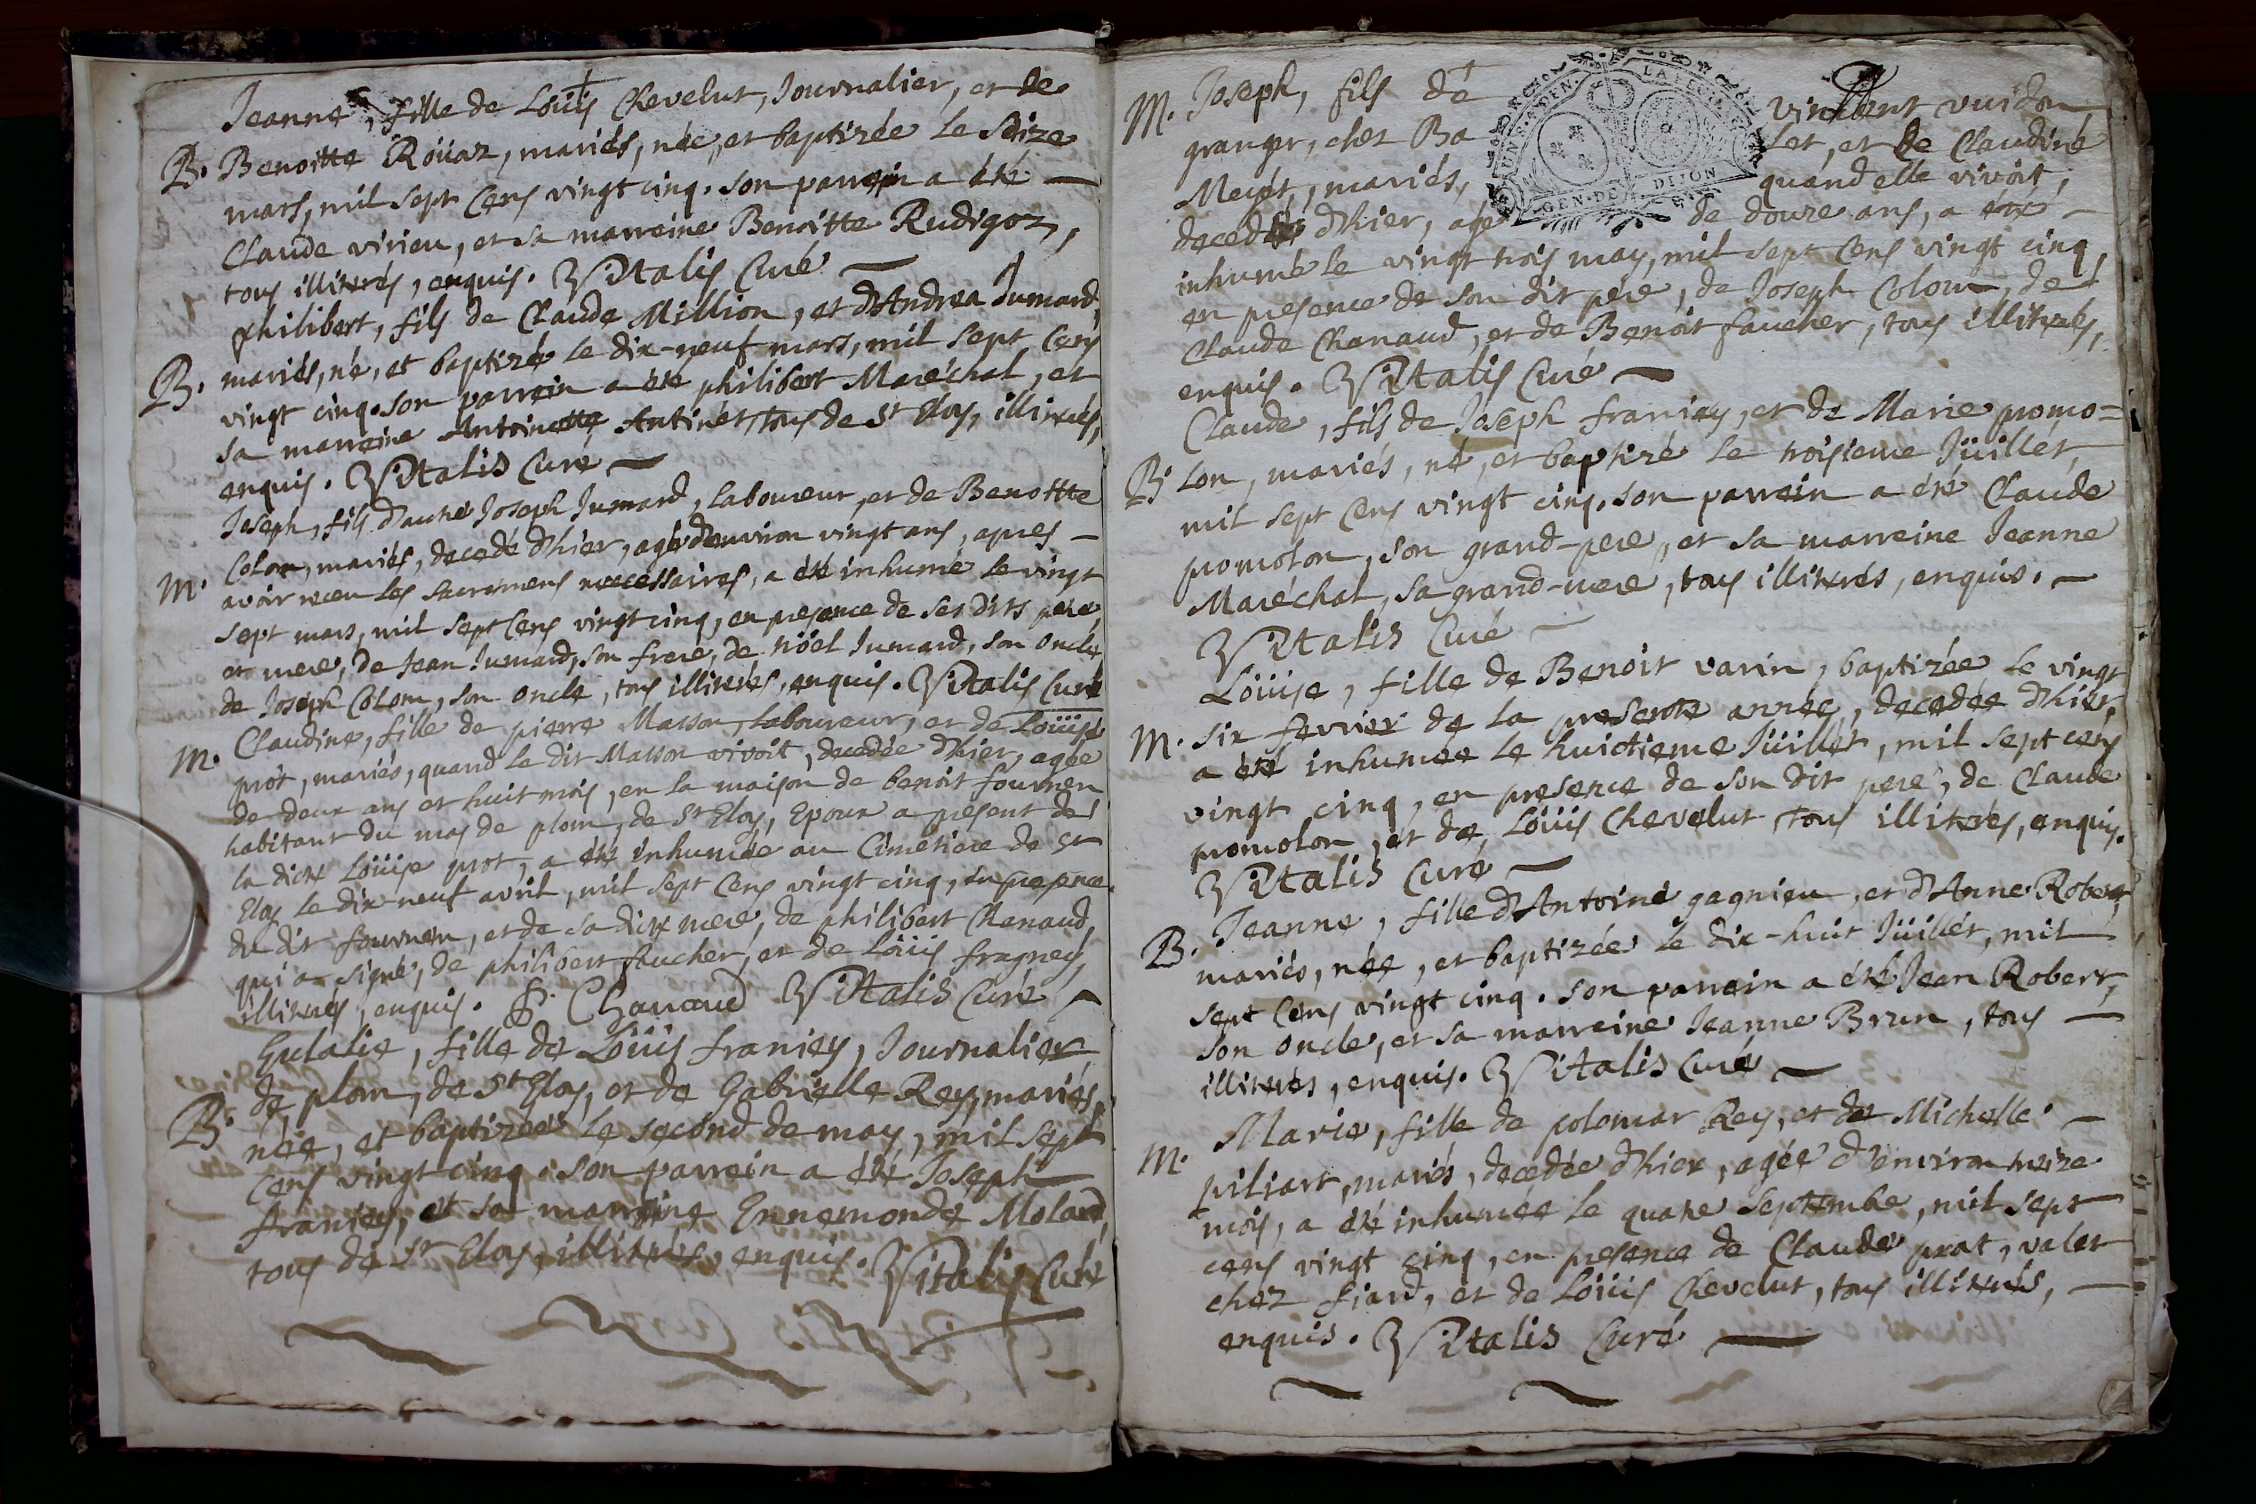 Jeanne, fille de Loüis Chevelut, Journalier, et de
B. Benoitte Roüaz, mariés, née, et baptizée le Seize
mars, mil sept cens vingt cinq. son parrein a été —
Claude virieu, et sa marreine Benoitte Rudigoz,
tous illiterés, enquis. Vitalis Curé —
philibert, fils de Claude Million, et d'Andrea Jumard,
B. mariés, né, et baptizé le dix-neuf mars, mil sept cens
vingt cinq. son parrein a été philibert Maréchal, et
sa marreine Antoinette Antinét, tous de St Eloy, illiterés,
enquis. Vitalis Curé —
Joseph, fils d'autre Joseph Jumard, laboureur, et de Benoitte
M. Colom, mariés, decedé d'hier, agé d'environ vingt ans, apres —
avoir receu les sacremens neccessaires, a été inhumé le vingt
sept mars, mil sept cens vingt cinq, en presence de ses dits pere,
et mere, de Jean Jumard, son frere, de Nöel Jumard, son oncle
de Joseph Colom, son oncle, tous illiterés, enquis. Vitalis Curé
M. Claudine, fille de pierre Masson, laboureur, et de Loüise
prot, mariés, quand le dit Masson vivoit, decedée d'hier, agée
de deux ans et huit mois, en la maison de benoit fournen
habitant du mas de plom, de St Eloy, Epoux a present de
la dicte Loüise prot, a été inhumée au Cimetiere de St
Eloy le dix-neuf avril, mil sept cens vingt cinq, en presence
du dit fournen, et de sa dicte mere, de philibert Chanaud,
qui a signé, de philibert faucher, et de Loüis fragney,
illiterés, enquis. P. Chanaud Vitalis Curé —
Eulalie, fille de Loüis franiey, Journalier
de plom, de St Eloy, et de Gabrielle Rey, mariés,
B. née, et baptizée le second de may, mil sept
cens vingt cinq. son parrein a été Joseph
franiey, et sa marreine Ennemonde Molard,
tous de St Eloy, illiterés, enquis. Vitalis Curé
M. Joseph, fils de vincent vuidon
granger, chez Ba let, et de Claudine
Meyét, mariés, quand elle vivoit,
decedé d'hier, agé de douze ans, a été —
inhumé le vingt trois may, mil sept cens vingt cinq,
en presence de son dit pere, de Joseph Colom, de
Claude Chanaud, et de Benoit faucher, tous illiterés,
enquis. Vitalis Curé —
Claude, fils de Joseph franiey, et de Marie promo=
B. lon, mariés, né, et baptizé le troisieme Jüillet,
mil sept cens vingt cinq. son parrein a été Claude
promolon, son grand-pere, et sa marreine Jeanne
Maréchal, sa grand-mere, tous illiterés, enquis. —
Vitalis Curé —
Loüise, fille de Benoit varin, baptizée le vingt
M. six fevrier de la presente année, decedée d'hier,
a été inhumée le huictieme Jüillet, mil sept cens
vingt cinq, en presence de son dit pere, de Claude
promolon, et de Loüis Chevelut tous illiterés, enquis.
Vitalis Curé —
Jeanne, fille d'Antoine gagnieu, et d'Anne Robert,
B. mariés, née, et baptizée le dix-huit Jüillét, mil
sept cens vingt cinq. son parrein a été Jean Robert,
son oncle, et sa marreine Jeanne Brun, tous —
illiterés, enquis. Vitalis Curé —
Marie, fille de polomar Rey, et de Michelle —
M. piliart, mariés, decedée d'hier, agée d'environ treize
mois, a été inhumée le quatre septembre, mil sept
cens vingt cinq, en presence de Claude prat, valet
chez fiard, et de Loüis Chevelut, tous illiterés, —
enquis. Vitalis Curé —
GEN. DE DIJON